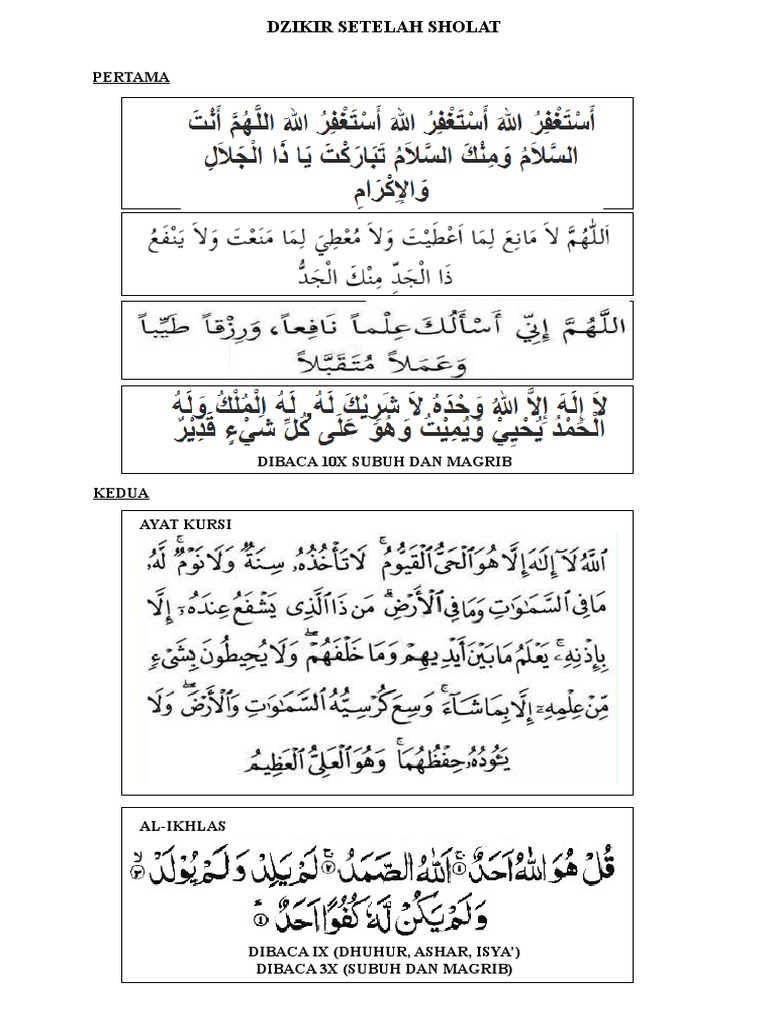 DZIKIR SETELAH SHOLAT
PERTAMA
أَسْتَغْفِرُ اللهَ أَسْتَغْفِرُ اللهَ أَسْتَغْفِرُ اللهَ اللَّهُمَّ أَنْتَ
السَّلَامُ وَمِنْكَ السَّلَامُ تَبَارَكْتَ يَا ذَا الْجَلَالِ
وَالإِكْرَامِ
اَللّٰهُمَّ لاَ مَانِعَ لِمَا اَعْطَيْتَ وَلاَ مُعْطِيَ لِمَا مَنَعْتَ وَلاَ يَنْفَعُ
ذَا الْجَدِّ مِنْكَ الْجَدُّ
اللَّهُمَّ إِنِّي أَسْأَلُكَ عِلْماً نَافِعاً، وَرِزْقاً طَيِّباً
وَعَمَلاً مُتَقَبَّلاً
لاَ إِلَهَ إِلاَّ اللهُ وَحْدَهُ لاَ شَرِيْكَ لَهُ, لَهُ الْمُلْكُ وَلَهُ
الْحَمْدُ يُحْيِيْ وَيُمِيْتُ وَهُوَ عَلَى كُلِّ شَيْءٍ قَدِيْرٌ
DIBACA 10X SUBUH DAN MAGRIB
KEDUA
AYAT KURSI
ٱللَّهُ لَآ إِلَٰهَ إِلَّا هُوَ ٱلْحَىُّ ٱلْقَيُّومُ ۚ لَا تَأْخُذُهُۥ سِنَةٌ وَلَا نَوْمٌ ۚ لَّهُۥ
مَا فِى ٱلسَّمَٰوَٰتِ وَمَا فِى ٱلْأَرْضِ ۗ مَن ذَا ٱلَّذِى يَشْفَعُ عِندَهُۥٓ إِلَّا
بِإِذْنِهِۦ ۚ يَعْلَمُ مَا بَيْنَ أَيْدِيهِمْ وَمَا خَلْفَهُمْ ۖ وَلَا يُحِيطُونَ بِشَىْءٍ
مِّنْ عِلْمِهِۦٓ إِلَّا بِمَا شَآءَ ۚ وَسِعَ كُرْسِيُّهُ ٱلسَّمَٰوَٰتِ وَٱلْأَرْضَ ۖ وَلَا
يَـُٔودُهُۥ حِفْظُهُمَا ۚ وَهُوَ ٱلْعَلِىُّ ٱلْعَظِيمُ
AL-IKHLAS
قُلْ هُوَ اللّٰهُ اَحَدٌ ۚ ﴿١﴾ اَللّٰهُ الصَّمَدُ ۚ ﴿٢﴾ لَمْ يَلِدْ وَلَمْ يُوْلَدْ ۙ ﴿٣﴾
وَلَمْ يَكُنْ لَّهٗ كُفُوًا اَحَدٌ ﴿٤﴾
DIBACA IX (DHUHUR, ASHAR, ISYA’)
DIBACA 3X (SUBUH DAN MAGRIB)